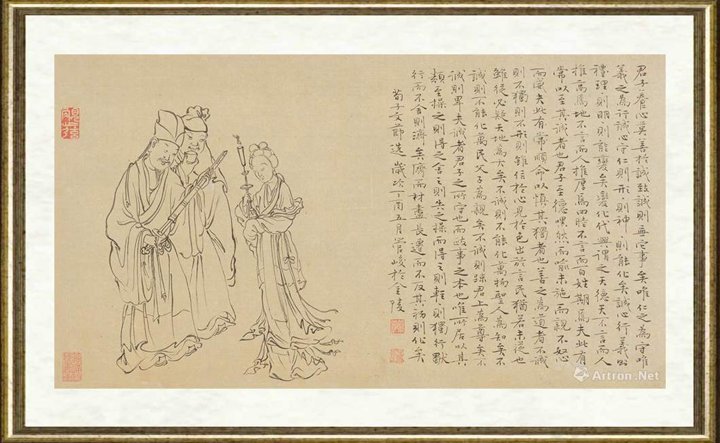 君子養心莫善於誠致誠則無它事矣唯仁之為守唯
義之為行誠心守仁則形則神則能化矣誠心行義則
理則明則能變矣變化代興謂之天德天不言而人
推高焉地不言而人推厚焉四時不言而百姓期焉夫此有
常以至其誠者也君子至德嘿然而喻未施而親不怒
而威夫此有常順命以慎其獨者也善之為道者不誠
則不獨則不形則雖作於心見於色出於言民猶若未從也
雖從必疑天地為大矣不誠則不能化萬物聖人為知矣不
誠則不能化萬民父子為親矣不誠則疏君上為尊矣不
誠則卑夫誠者君子之所守也而政事之本也唯所居以其
類至操之則得之舍之則失之操而得之則輕則獨行獨
行而不舍則濟矣濟而材盡長遷而不反其初則化矣
荀子文節選歲次丁酉五月管峻於金陵
Artron.Net